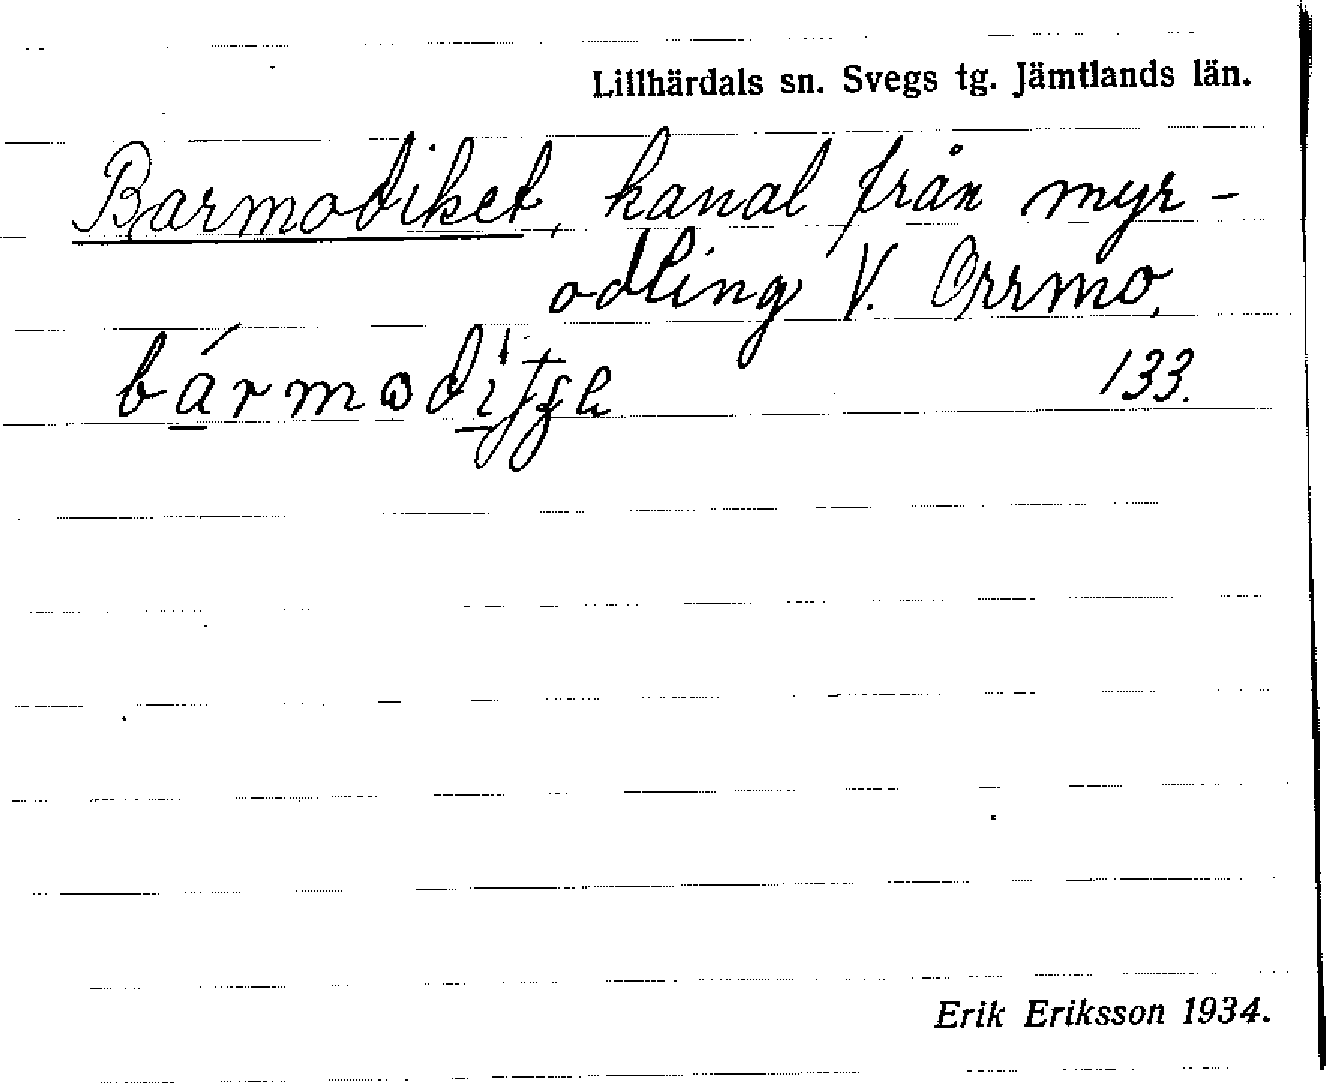 Lillhärdals sn. Svegs tg. Jämtlands län.
Barmodiket, kanal från myr-
odling V. Orrmo,
133.
Erik Eriksson 1934.